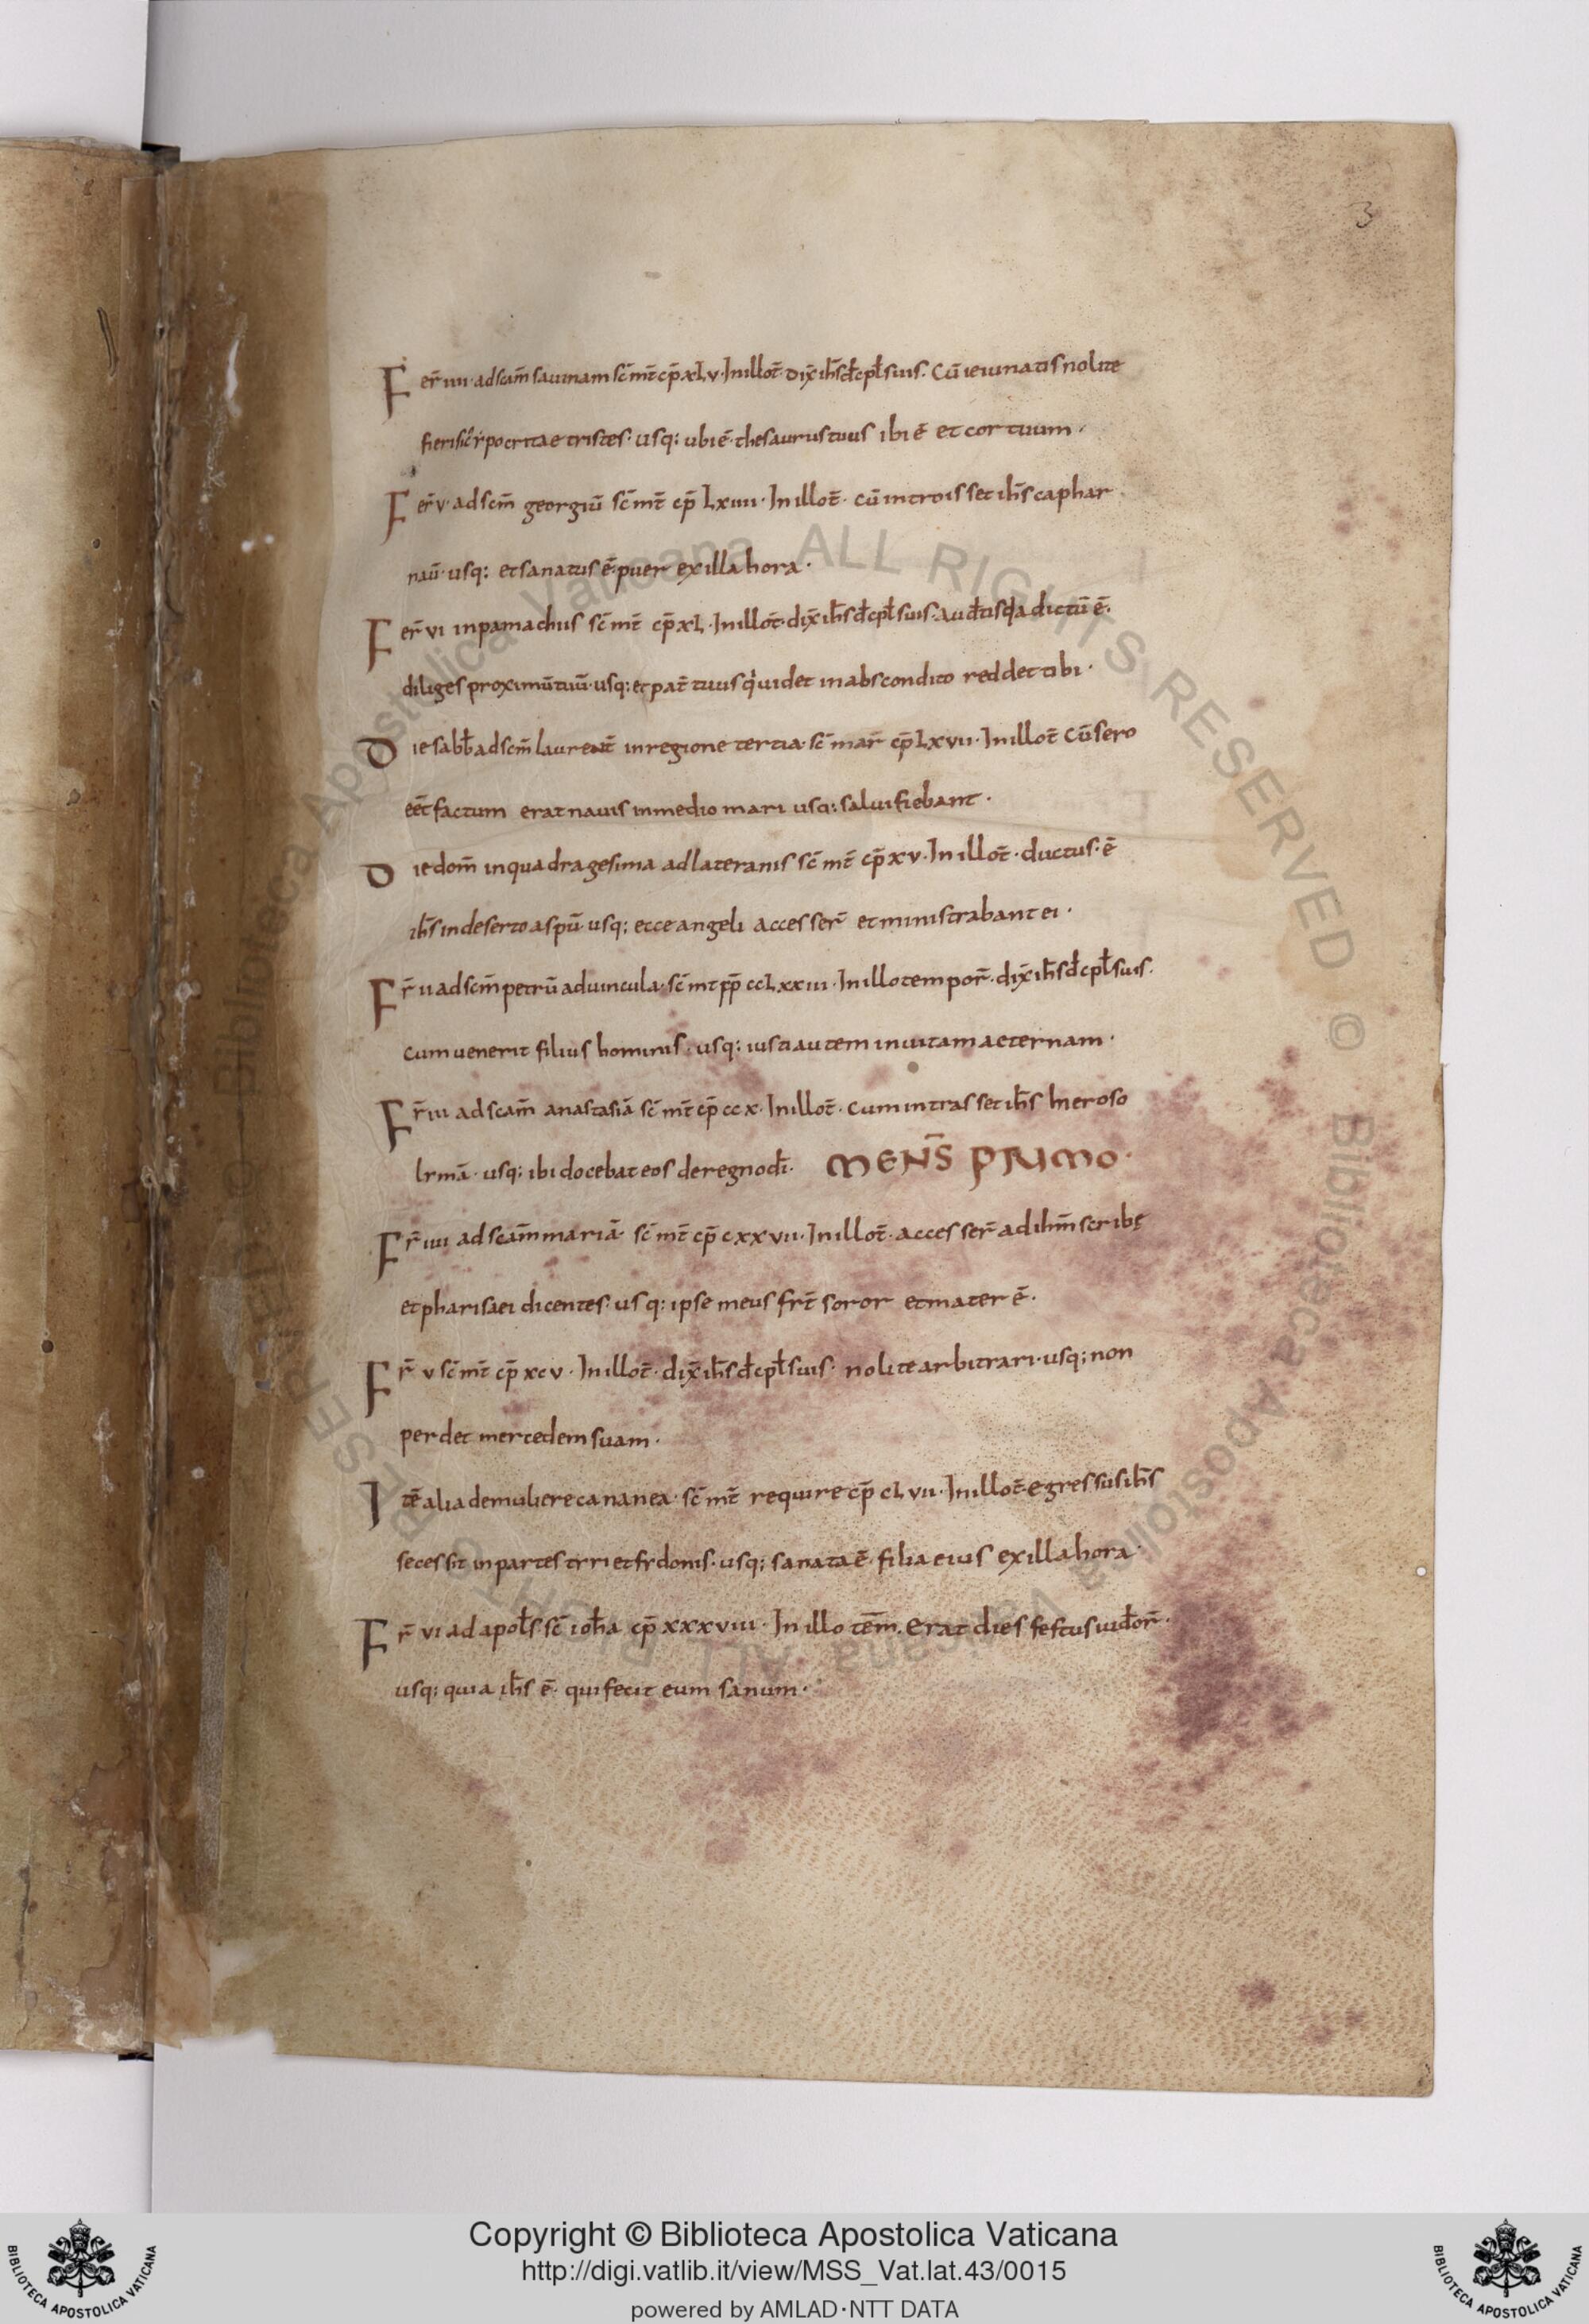 3
Fer̄ iiii · ad scam̄ sauinam sc̄ mt̄ cp̄ xLv · In illo t̄ · dix̄ ih̄s dc̄pl̄ suis · Cū ieiunatis nolite
fieri sic̄ ypocritae tristes · usq: ubi ē thesaurus tuus ibi ē et cor tuum ·
Fer̄ v · ad scm̄ georgiū sc̄ mt̄ cp̄ Lxiiii · In illo t̄ · cū introisset ih̄s caphar
naū · usq: et sanatus ē puer ex illa hora ·
Fer̄ vi in pamachiis sc̄ mt̄ cp̄ xL · In illo t̄ · dix̄ ih̄s dc̄pl̄ suis · Aud̄tis q̄a dictū ē ·
diliges proximū tuū · usq: et pat̄ tuus q̇ uidet in abscondito reddet tibi ·
Die sabb̄ ad scm̄ laurent̄ in regione tertia · sc̄ mar̄ cp̄ Lxvii · In illo t̄ Cū sero
eēt factum erat nauis in medio mari usq: salui fiebant ·
Die dom̄ in quadragesima ad lateranis sc̄ mt̄ cp̄ xv · In illo t̄ · ductus · ē
ih̄s in deserto a spū · usq; ecce angeli accesser̄ et ministrabant ei ·
Fr̄ ii ad scm̄ petrū ad uincula · sc̄ mt cp̄ ccLxxiii · In illo tempor̄ · dix̄ ih̄s dc̄pl̄ suis ·
cum uenerit filius hominis · usq: iusti autem in uitam aeternam ·
Fr̄ iii ad scam̄ anastasiā sc̄ mt̄ cp̄ cc x · In illo t̄ · cum intrasset ih̄s hieroso
lymā · usq; ibi docebat eos de regno dī · MENS̄ PRIMO ·
Fr̄ iiii ad scam̄ mariā · sc̄ mt̄ cp̄ cxxvii · In illo t̄ · accesser̄ ad ihm̄ scribę
et pharisaei dicentes · usq: ipse meus frt̄ soror et mater ē ·
Fr̄ v sc̄ mt̄ cp̄ xcv · In illo t̄ · dix̄ ih̄s dc̄pl̄ suis · nolite arbitrari · usq; non
perdet mercedem suam ·
Itē alia de muliere cananea · sc̄ mt̄ require cp̄ cLvii · In illo t̄ egressus ih̄s
secessit in partes tyri et sydonis · usq; sanata ē filia eius ex illa hora ·
Fr̄ vi ad apol̄s sc̄ ioh̄a cp̄ xxxviii · In illo tēm · erat dies festus iud̄or̄ ·
usq; quia ih̄s ē · qui fecit eum sanum ·
Biblioteca Apostolica Vaticana ALL RIGHTS RESERVED © Biblioteca Apostolica Vaticana ALL RIGHTS RESERVED ©
Copyright © Biblioteca Apostolica Vaticana
http://digi.vatlib.it/view/MSS_Vat.lat.43/0015
powered by AMLAD·NTT DATA
BIBLIOTECA APOSTOLICA VATICANA
BIBLIOTECA APOSTOLICA VATICANA